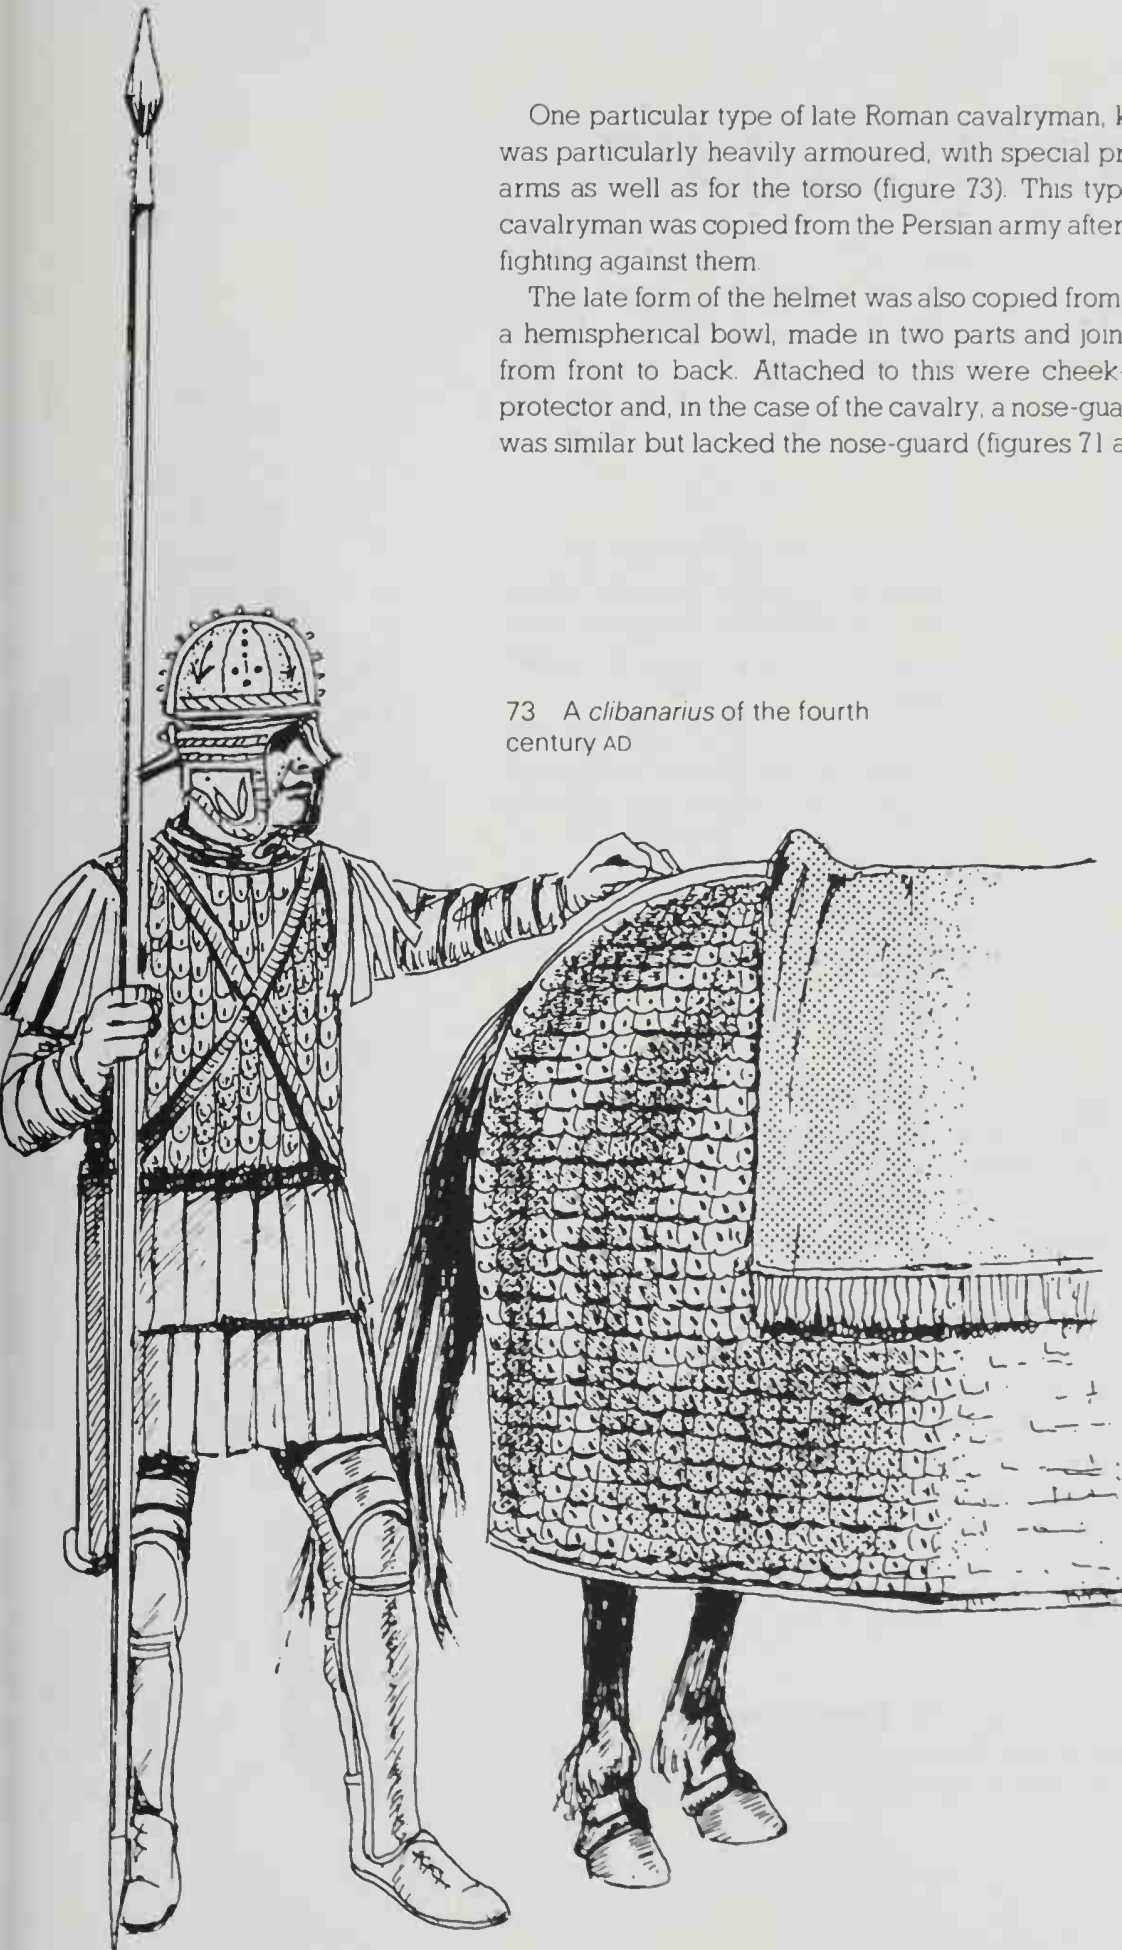 One particular type of late Roman cavalryman,
was particularly heavily armoured, with special
arms as well as for the torso (figure 73). This
cavalryman was copied from the Persian army after
fighting against them.
The late form of the helmet was also copied from
a hemispherical bowl, made in two parts and
from front to back. Attached to this were cheek-
protector and, in the case of the cavalry, a
was similar but lacked the nose-guard (figures 71
73 A clibanarius of the fourth
century AD